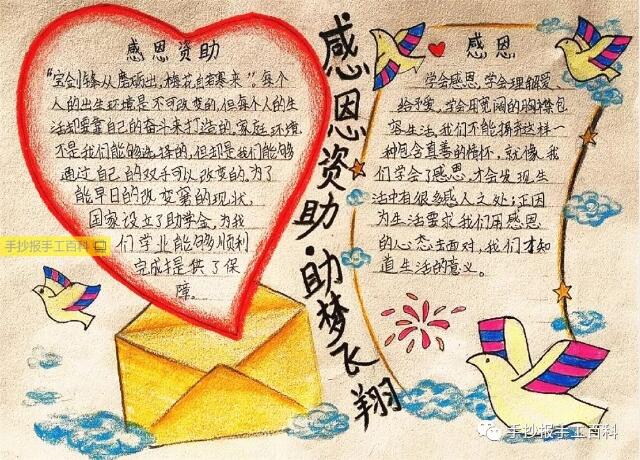 感恩资助
“宝剑锋从磨砺出，梅花香自苦寒来”。每个
人的出生环境是不可改变的，但每个人的生
活却要靠自己的奋斗来打造的，家庭环境
不是我们能够选择的，但却是我们能够
通过自己的双手可以改变的。为了
能早日的改变穷的现状，
国家设立了助学金，为我
们学业能够顺利
完成提供了保
障。
感恩资助·助梦飞翔
感恩
学会感恩，学会理解爱、
给予爱，学会用宽阔的胸襟包
容生活，我们不能摒弃这样一
种包含真善的情怀，就像我
们学会了感恩，才会发现生
活中有很多感人之处；正因
为生活要求我们用感恩
的心态去面对，我们才知
道生活的意义。
手抄报手工百科
手抄报手工百科